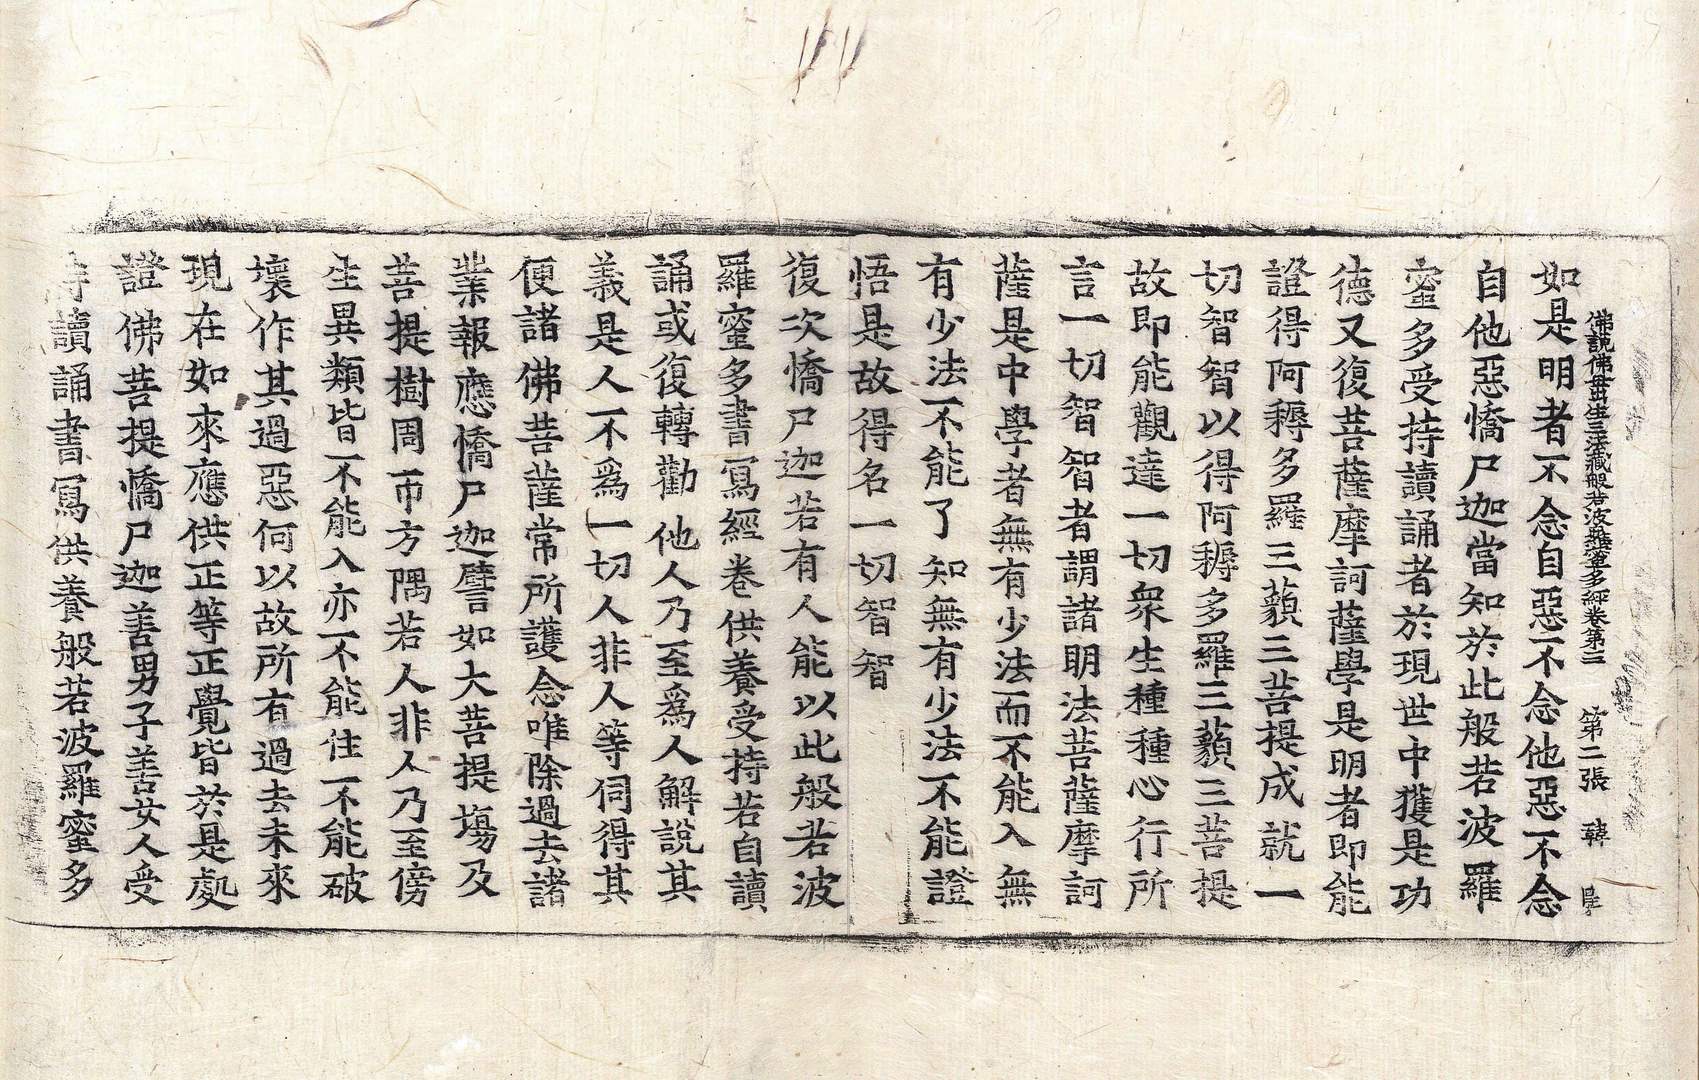 佛說佛母出生三法藏般若波羅蜜多經卷第三 第二張 韓
如是明者不念自惡不念他惡不念
自他惡憍尸迦當知於此般若波羅
蜜多受持讀誦者於現世中獲是功
德又復菩薩摩訶薩學是明者即能
證得阿耨多羅三藐三菩提成就一
切智智以得阿耨多羅三藐三菩提
故即能觀達一切衆生種種心行所
言一切智智者謂諸明法菩薩摩訶
薩是中學者無有少法而不能入無
有少法不能了知無有少法不能證
悟是故得名一切智智
復次憍尸迦若有人能以此般若波
羅蜜多書寫經卷供養受持若自讀
誦或復轉勸他人乃至爲人解說其
義是人不爲一切人非人等伺得其
便諸佛菩薩常所護念唯除過去諸
業報應憍尸迦譬如大菩提場及
菩提樹周帀方隅若人非人乃至傍
生異類皆不能入亦不能住不能破
壞作其過惡何以故所有過去未來
現在如來應供正等正覺皆於是處
證佛菩提憍尸迦善男子善女人受
持讀誦書寫供養般若波羅蜜多